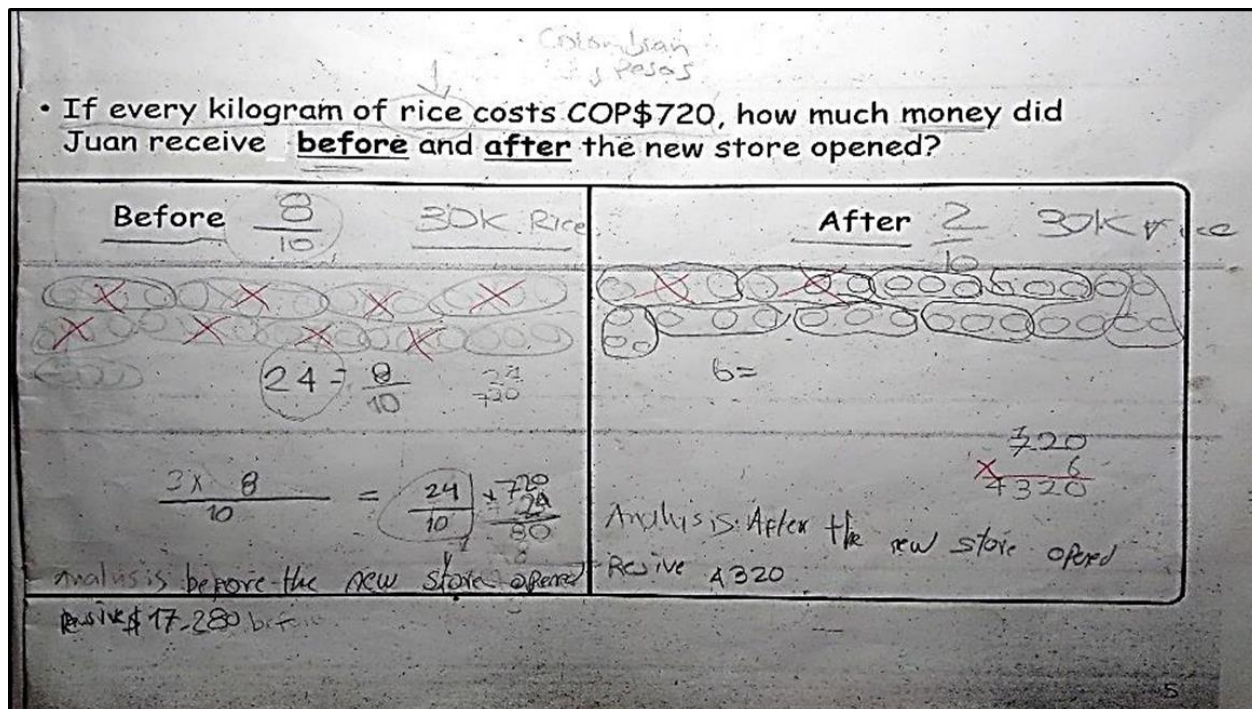 Colombian
Pesos
• If every kilogram of rice costs COP$720, how much money did
Juan receive before and after the new store opened?
Before 8/10 30K Rice
24 = 8/10
24
720
3 x 8/10 = 24/10
x 720
24
80
8
Analysis before the new store opened
$17.280
After 2/10 30K rice
6=
720
x 6
4320
Analysis: After the new store opened
Resive 4320
5